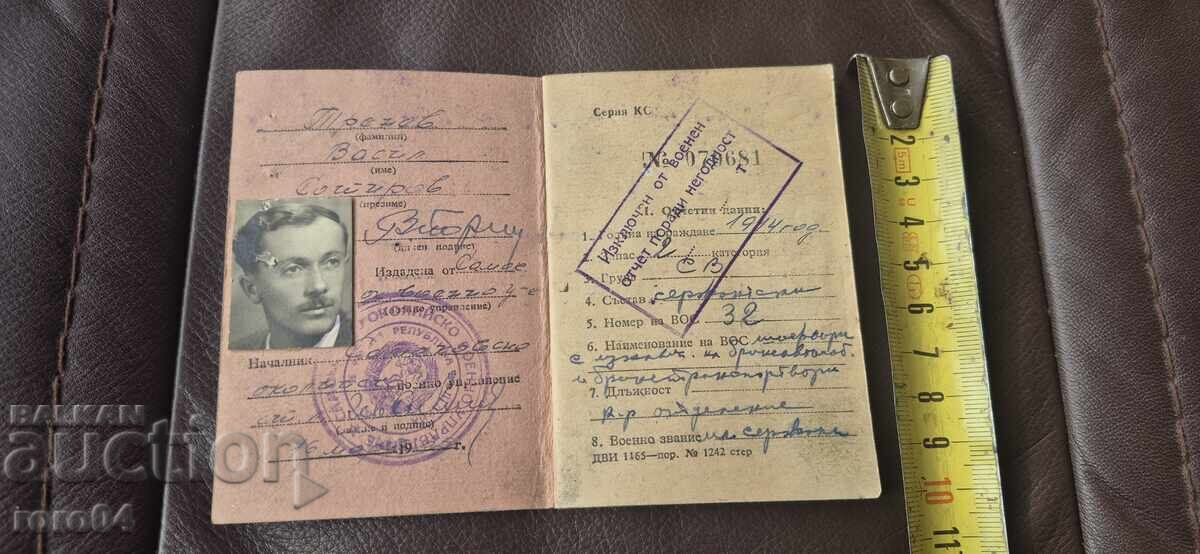 Трачав
(фамилия)
Васил
(име)
Сотиров
(презиме)
(личен подпис)
Издадена от
(военно управление)
Началник
военно управление
(звание и подпис)
19 г.
РЕПУБ
Серия КС
№ 079681
Изключен от военен
отчет поради негодност
1. Отчетни данни:
1. Година на раждане 1914 год
2. Запас II категория
3. Група СВ
4. Състав сержантски
5. Номер на ВОС 32
6. Наименование на ВОС шофьори
на бронеавтомоб.
и бронетранспортьори
7. Длъжност
к-р отделение
8. Военно звание мл. сержант
ДВИ 1165—пор. № 1242 стер
BALKAN
auction
toro04
2 3 4 5 6 7 8 9 10 11
5m